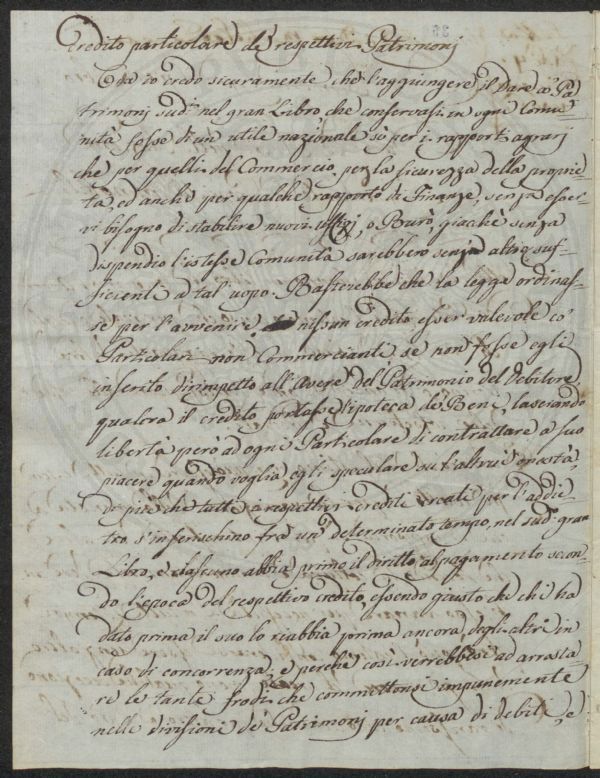 Credito particolare de' respettivi Patrimonj
Ora io credo sicuramente, che l'aggiungere il Dare a' Pa
trimonj sud.i nel gran Libro, che conservasi in ogni Comu
nità fosse di un utile nazionale sì per i rapporti agrarj
che per quelli del Commercio, per la sicurezza della proprie
tà, ed anche per qualche rapporto di Finanze, senza esser
vi bisogno di stabilire nuovi uffizj, o Burò, giacchè senza
dispendio l'istesse Comunità sarebbero senza altro suf-
ficienti a tal uopo. Basterebbe che la legge ordinas-
se per l'avvenire nissun credito esser valevole co'
Particolari non Commercianti se non fosse egli
inserito dirimpetto all'Avere del Patrimonio del Debitore,
qualora il credito portasse l'ipoteca de' Beni, lasciando
libertà però ad ogni Particolare di contrattare a suo
piacere quando voglia egli speculare su l'altrui onestà,
di più che tutti i respettivi crediti creati per l'addie
tro s'inferischino fra un determinato tempo, nel sud.o gran
Libro, e ciascuno abbia primo il diritto al pagamento secon
do l'epoca del respettivo credito, essendo giusto che chi ha
dato prima il suo lo riabbia prima ancora degli altri in
caso di concorrenza, e perchè così verrebbesi ad arresta
re le tante frodi, che commettonsi impunemente
nelle divisioni de' Patrimonj per causa di debiti, e